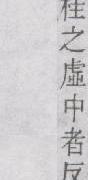 桂之虛中者反